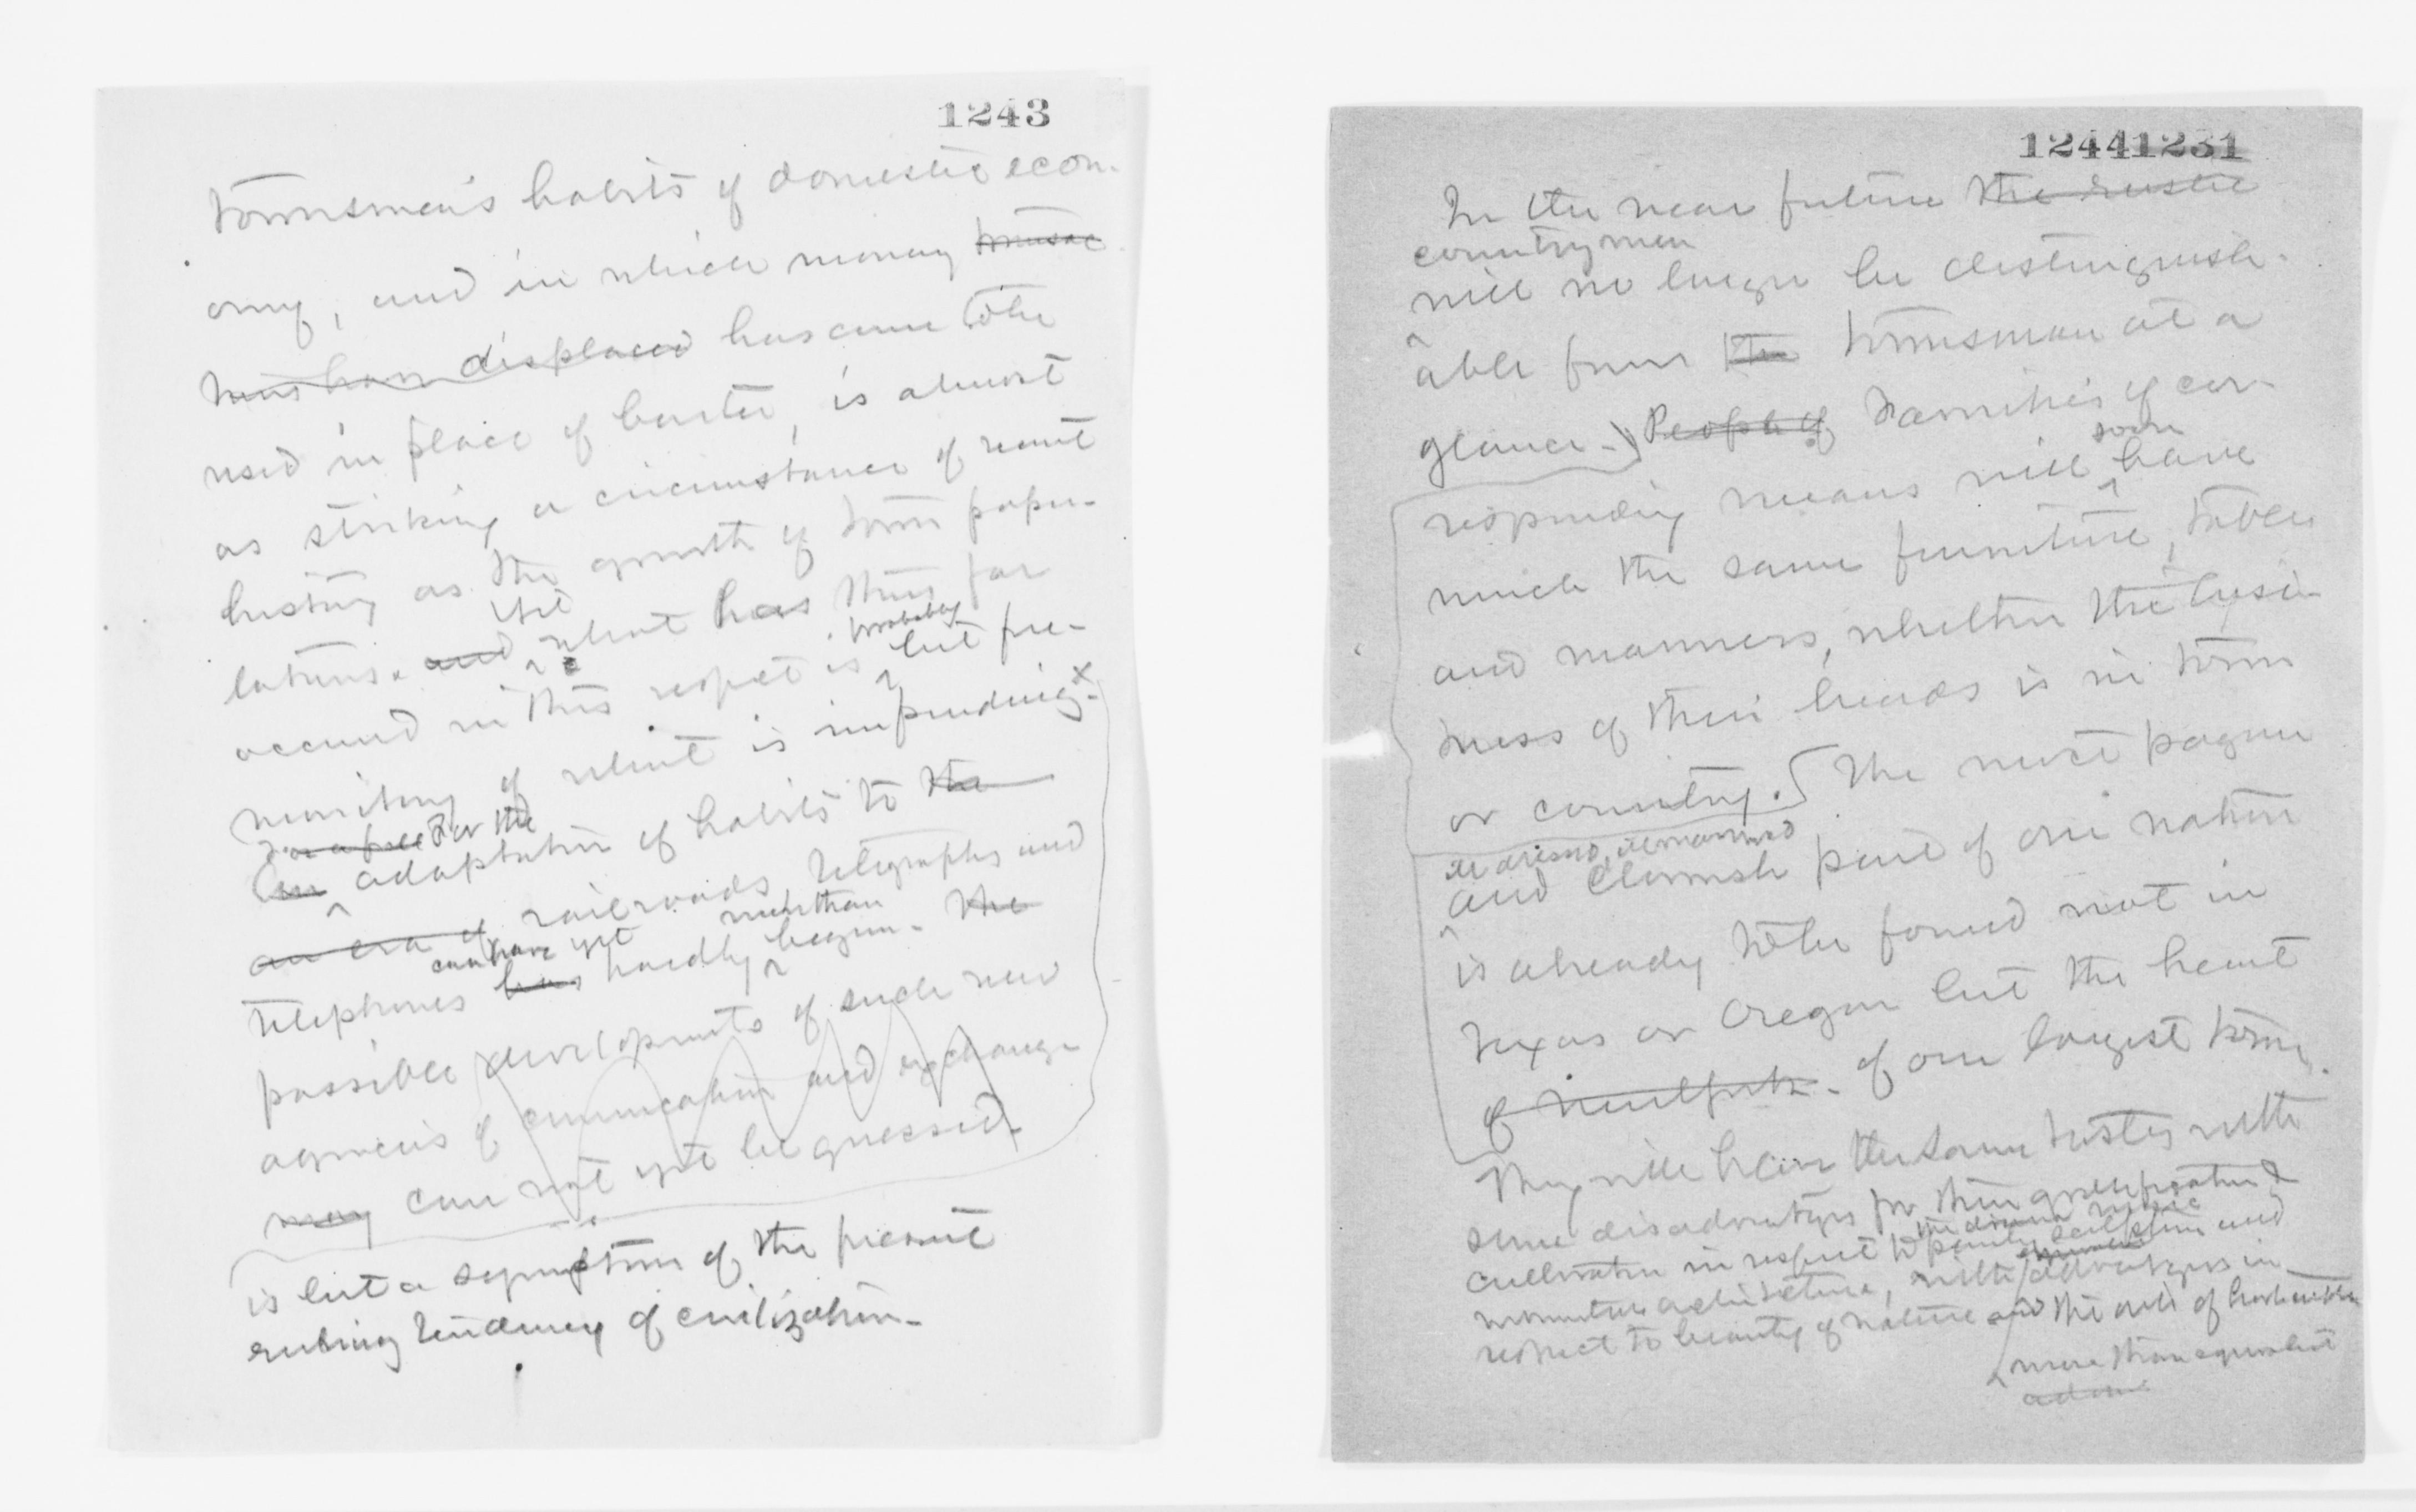 1243
townsmen's habits of domestic econ-
omy, and in which money
has displaced has come to be
used in place of barter, is almost
as striking a circumstance of recent
history as the growth of town popu-
lations. and yet what has thus far
occurred in this respect is probably but pre-
monitory of what is impending. x
For the
An adaptation of habits to the
an era of railroads, telegraphs and
can have yet more than
telephones has hardly begun. The
possible developments of such new
agencies of communication and exchange
may can not yet be guessed.
is but a symptom of the present
ruling tendency of civilization.
12441231
In the near future the rustic
countrymen
will no longer be distinguish-
able from the townsman at a
glance. People of Families of cor-
soon
responding means will have
much the same furniture, tables
and manners, whether the busi-
ness of their heads is in town
or country. The most pagan
ill dressed, ill mannered
and clownish part of our nation
is already to be found not in
Texas or Oregon but the heart
of of our largest towns.
They will have the same tastes with
some disadvantages for their gratification &
the drama music
cultivation in respect to painting sculpture and
monumental architecture, with advantages in
respect to beauty of nature and the arts of
more than equivalent